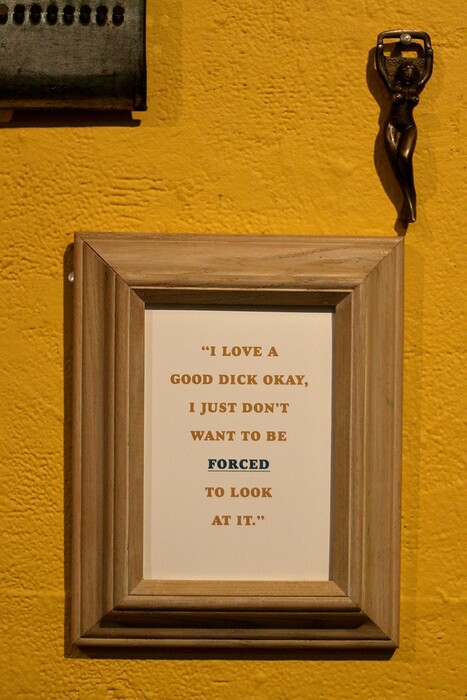 “I LOVE A
GOOD DICK OKAY,
I JUST DON'T
WANT TO BE
FORCED
TO LOOK
AT IT.”